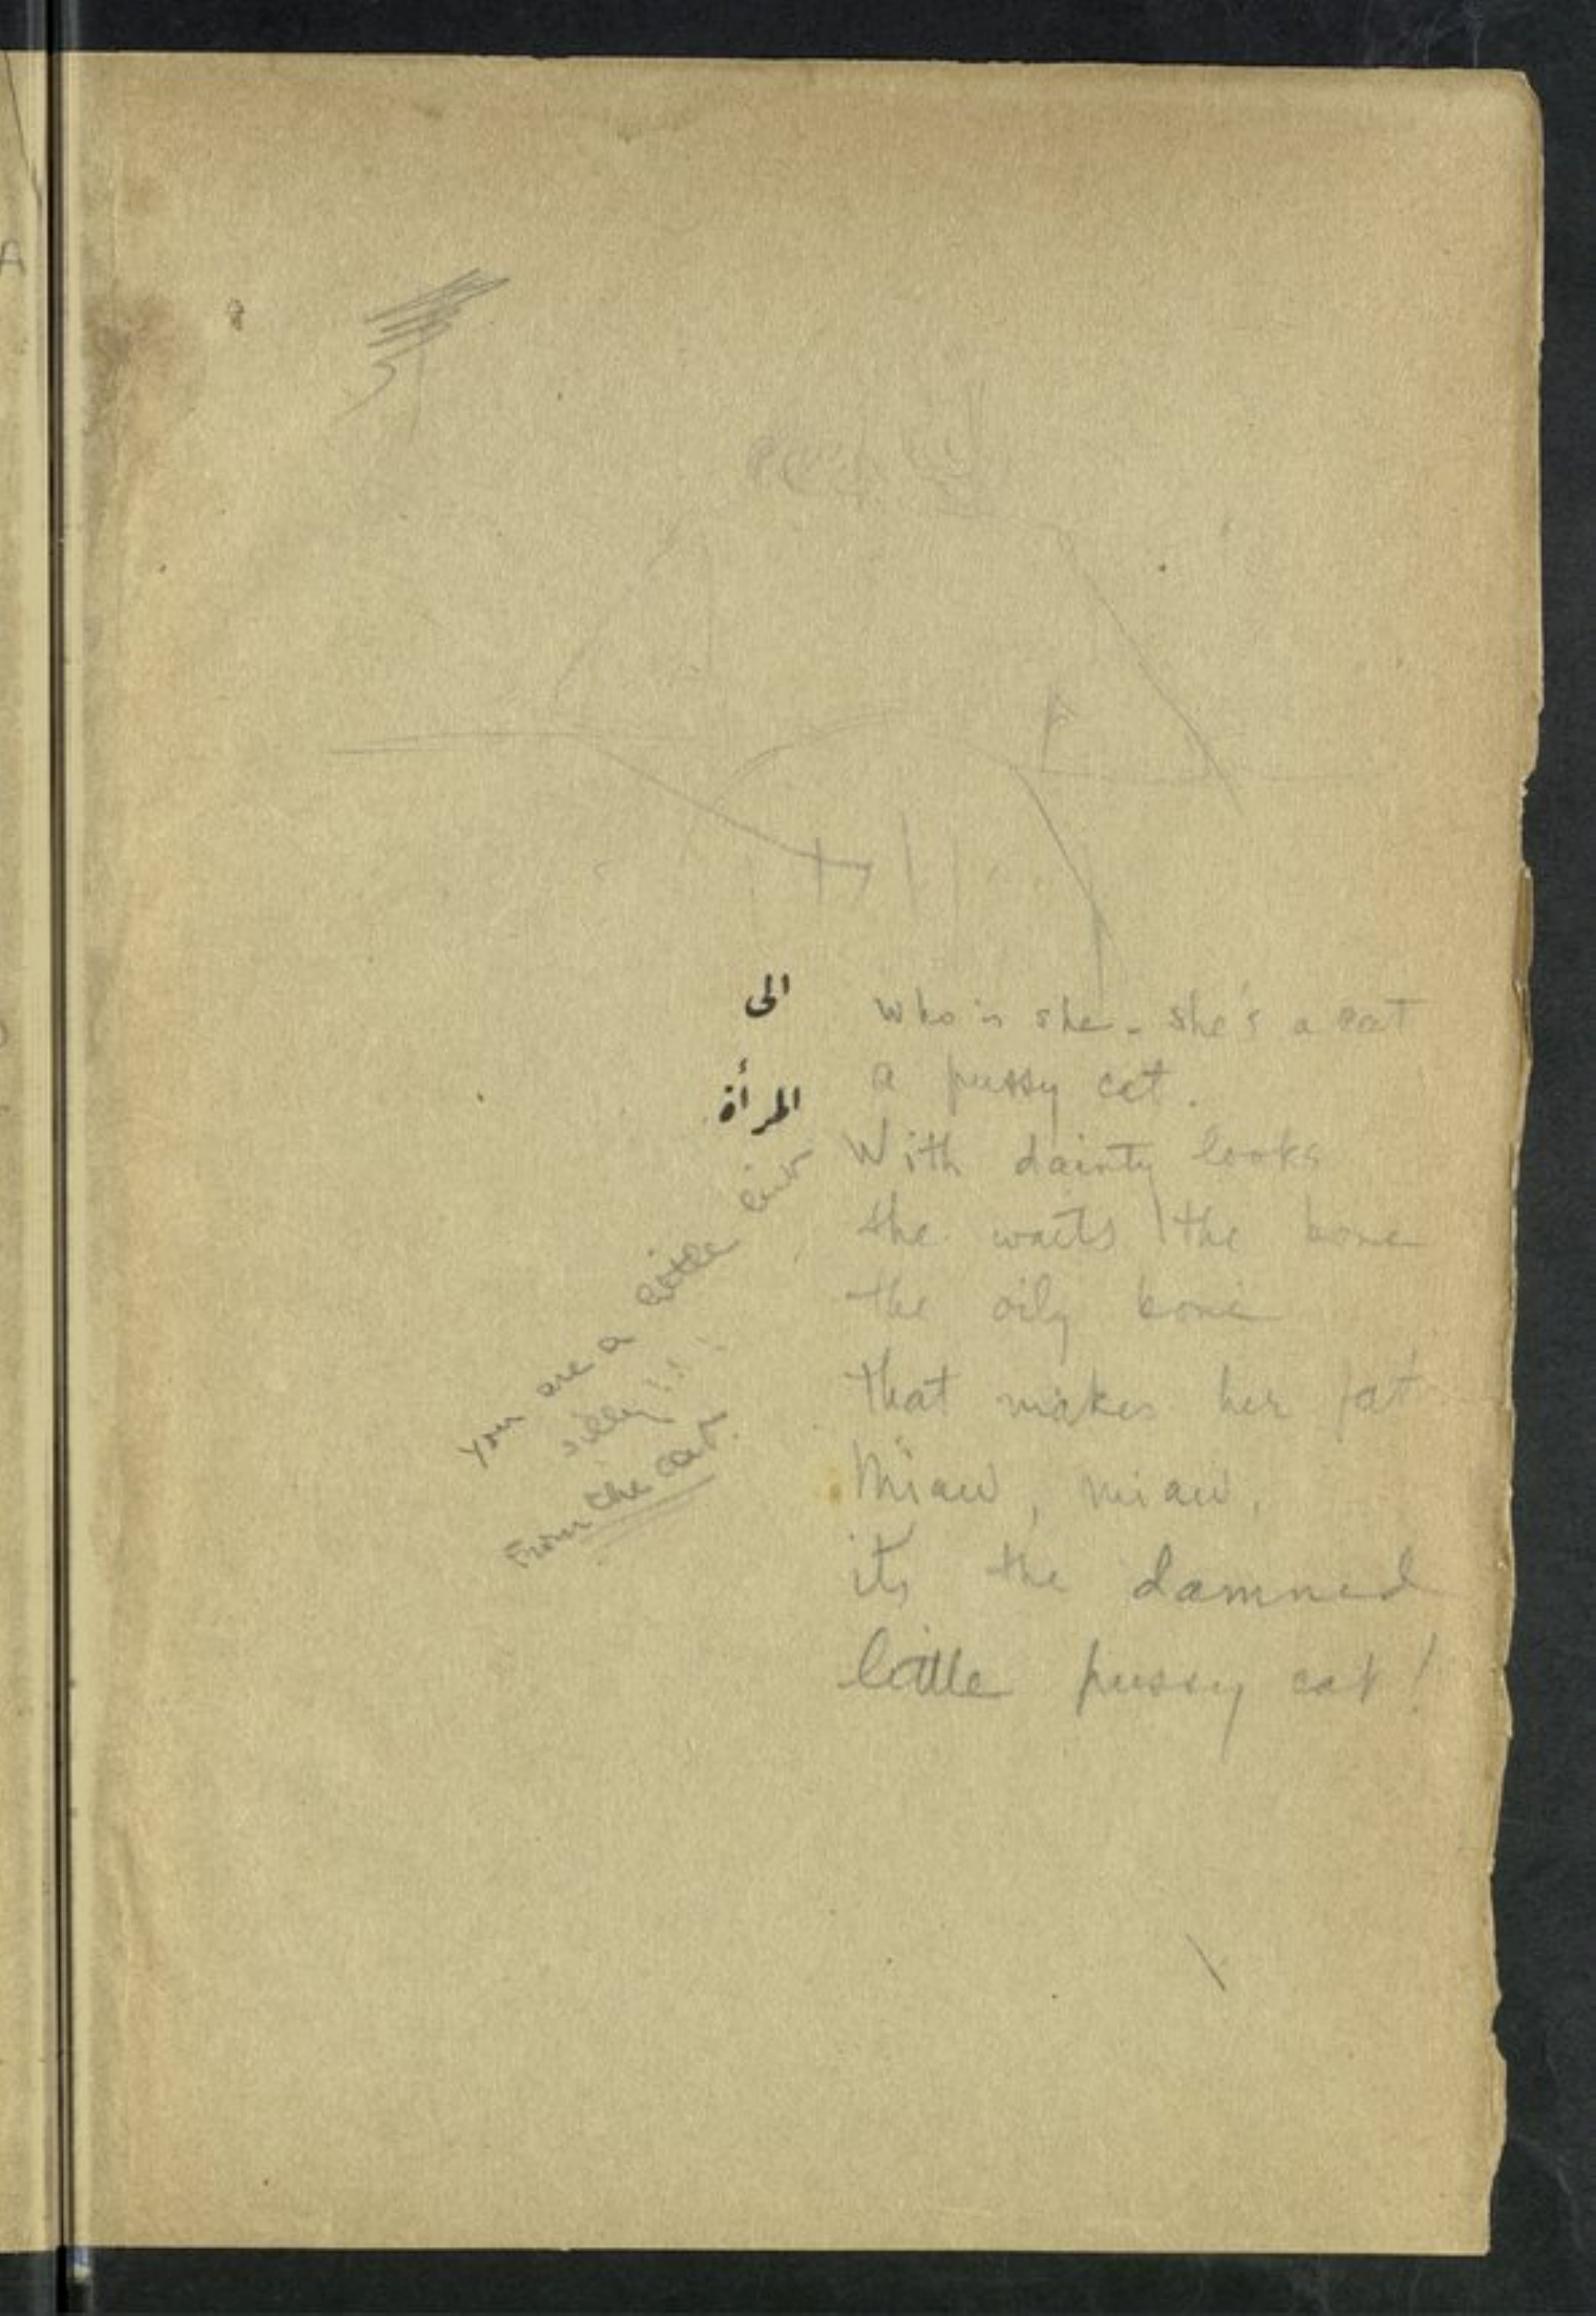 الى
المرأة
who is she - she's a cat
a pussy cat.
With dainty looks
she waits the bone
the oily bone
that makes her fat
Miaw, miaw,
its the damned
little pussy cat!
you are a little bit
silly!!!
From the cat.